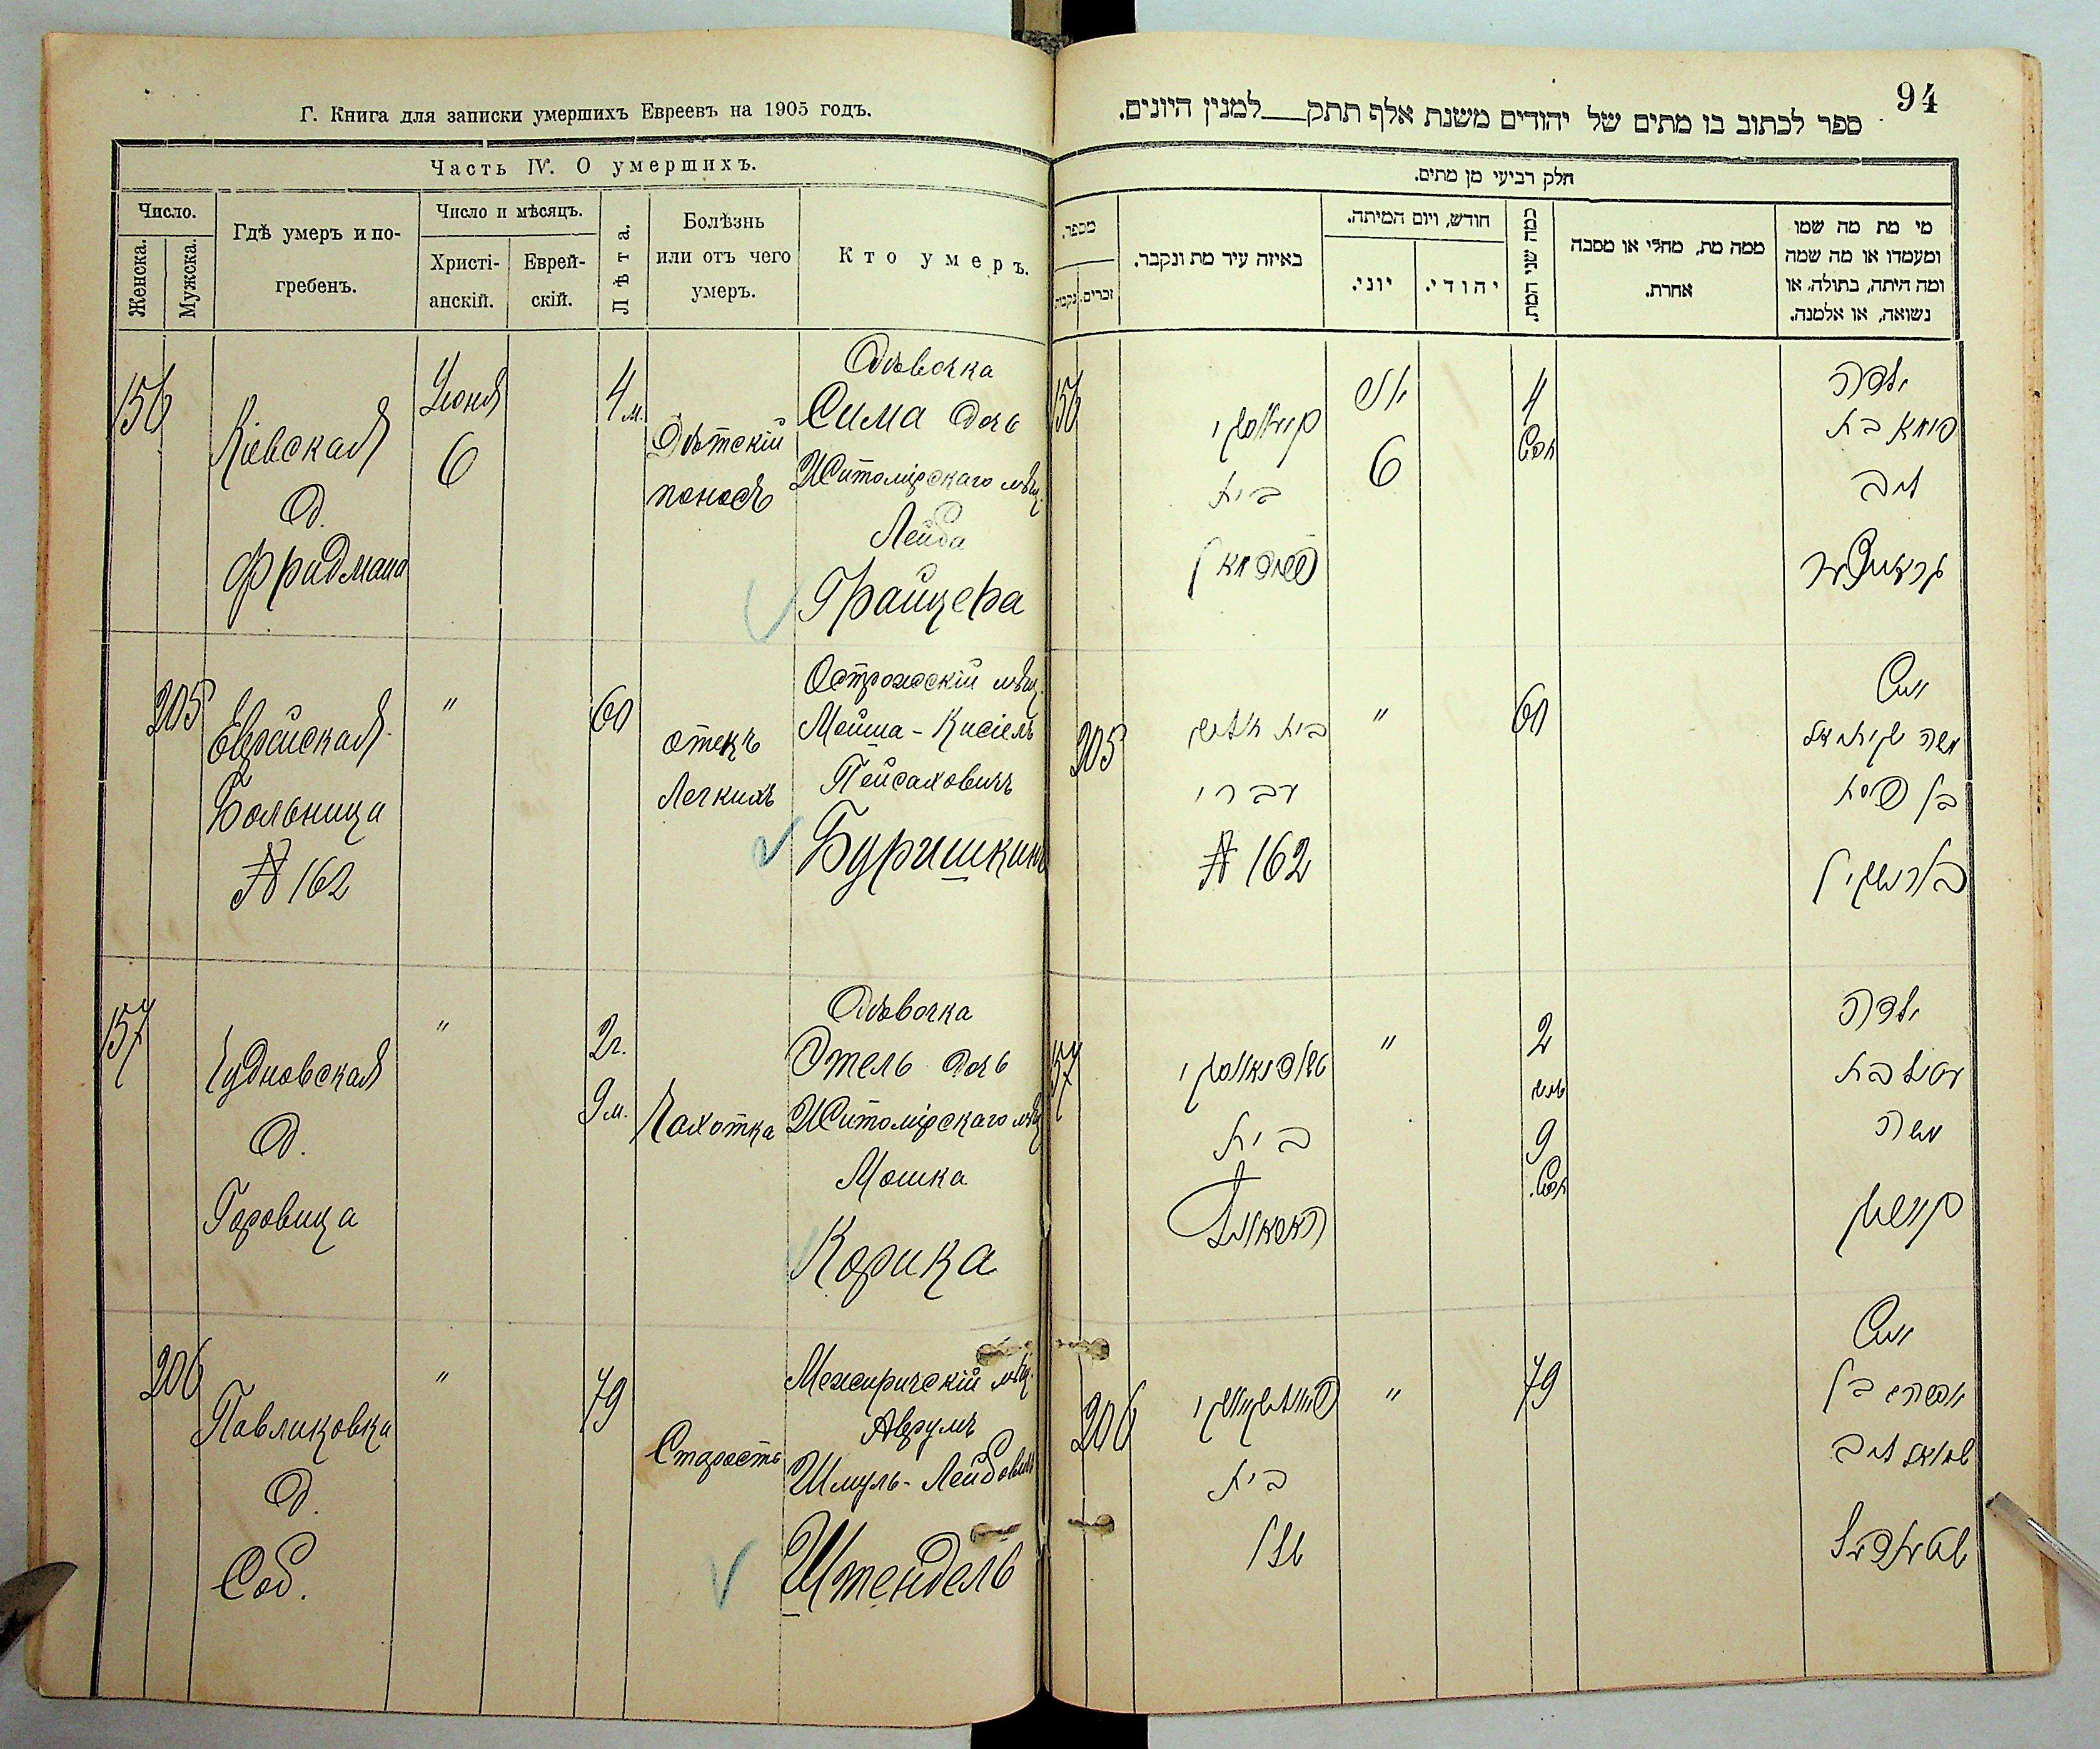 Г. Книга для записки умершихъ Евреевъ на 1905 годъ.
Часть IV. О умершихъ.
Число.
Женска.
Мужска.
Гдѣ умеръ и по-
гребенъ.
Число и мѣсяцъ.
Христі-
анскій.
Еврей-
скій.
Лѣта.
Болѣзнь
или отъ чего
умеръ.
Кто умеръ.
156
Кіевская
д.
Фридмана
Іюня
6
4 м.
Дѣтскій
поносъ
Дѣвочка
Сима дочь
Житомірскаго мѣщ.
Лейба
Грайцера
205
Еврейская
Больница
№ 162
"
60
отекъ
Легкихъ
Острожскій мѣщ.
Мойша-Кисіель
Пейсаховичъ
Буришкинъ
157
Чудновская
д.
Горовица
"
2 г.
9 м.
Чахотка
Дѣвочка
Этель дочь
Житомірскаго мѣщ
Мошка
Корика
206
Павликовка
д.
Соб.
"
79
Старость
Межиричскій мѣщ.
Аврумъ
Шмуль-Лейбовичъ
Штендель
94
ספר לכתוב בו מתים של יהודים משנת אלף תתק___למנין היונים.
חלק רביעי מן מתים.
מספר.
נקבות
זכרים.
באיזה עיר מת ונקבר.
חודש, ויום המיתה.
יוני.
יהודי.
כמה שני המת.
ממה מת, מחלי או מסבה
אחרת.
מי מת מה שמו
ומעמדו או מה שמה
ומה היתה, בתולה, או
נשואה, או אלמנה.
156
קיעווסקי
בית
פרידמאן
6
4
חדש
ילדה
סימא בת
ליב
גרייצער
205
בית
עברי
№ 162
"
60
איש
משה
בן פסח
בורישקין
157
טשודנאווסקי
בית
האראוויץ
"
2
9
חדש.
ילדה
עטיל בת
משה
206
בית
"
79
איש
אברהם בן
שמואל ליב
שטענדעל